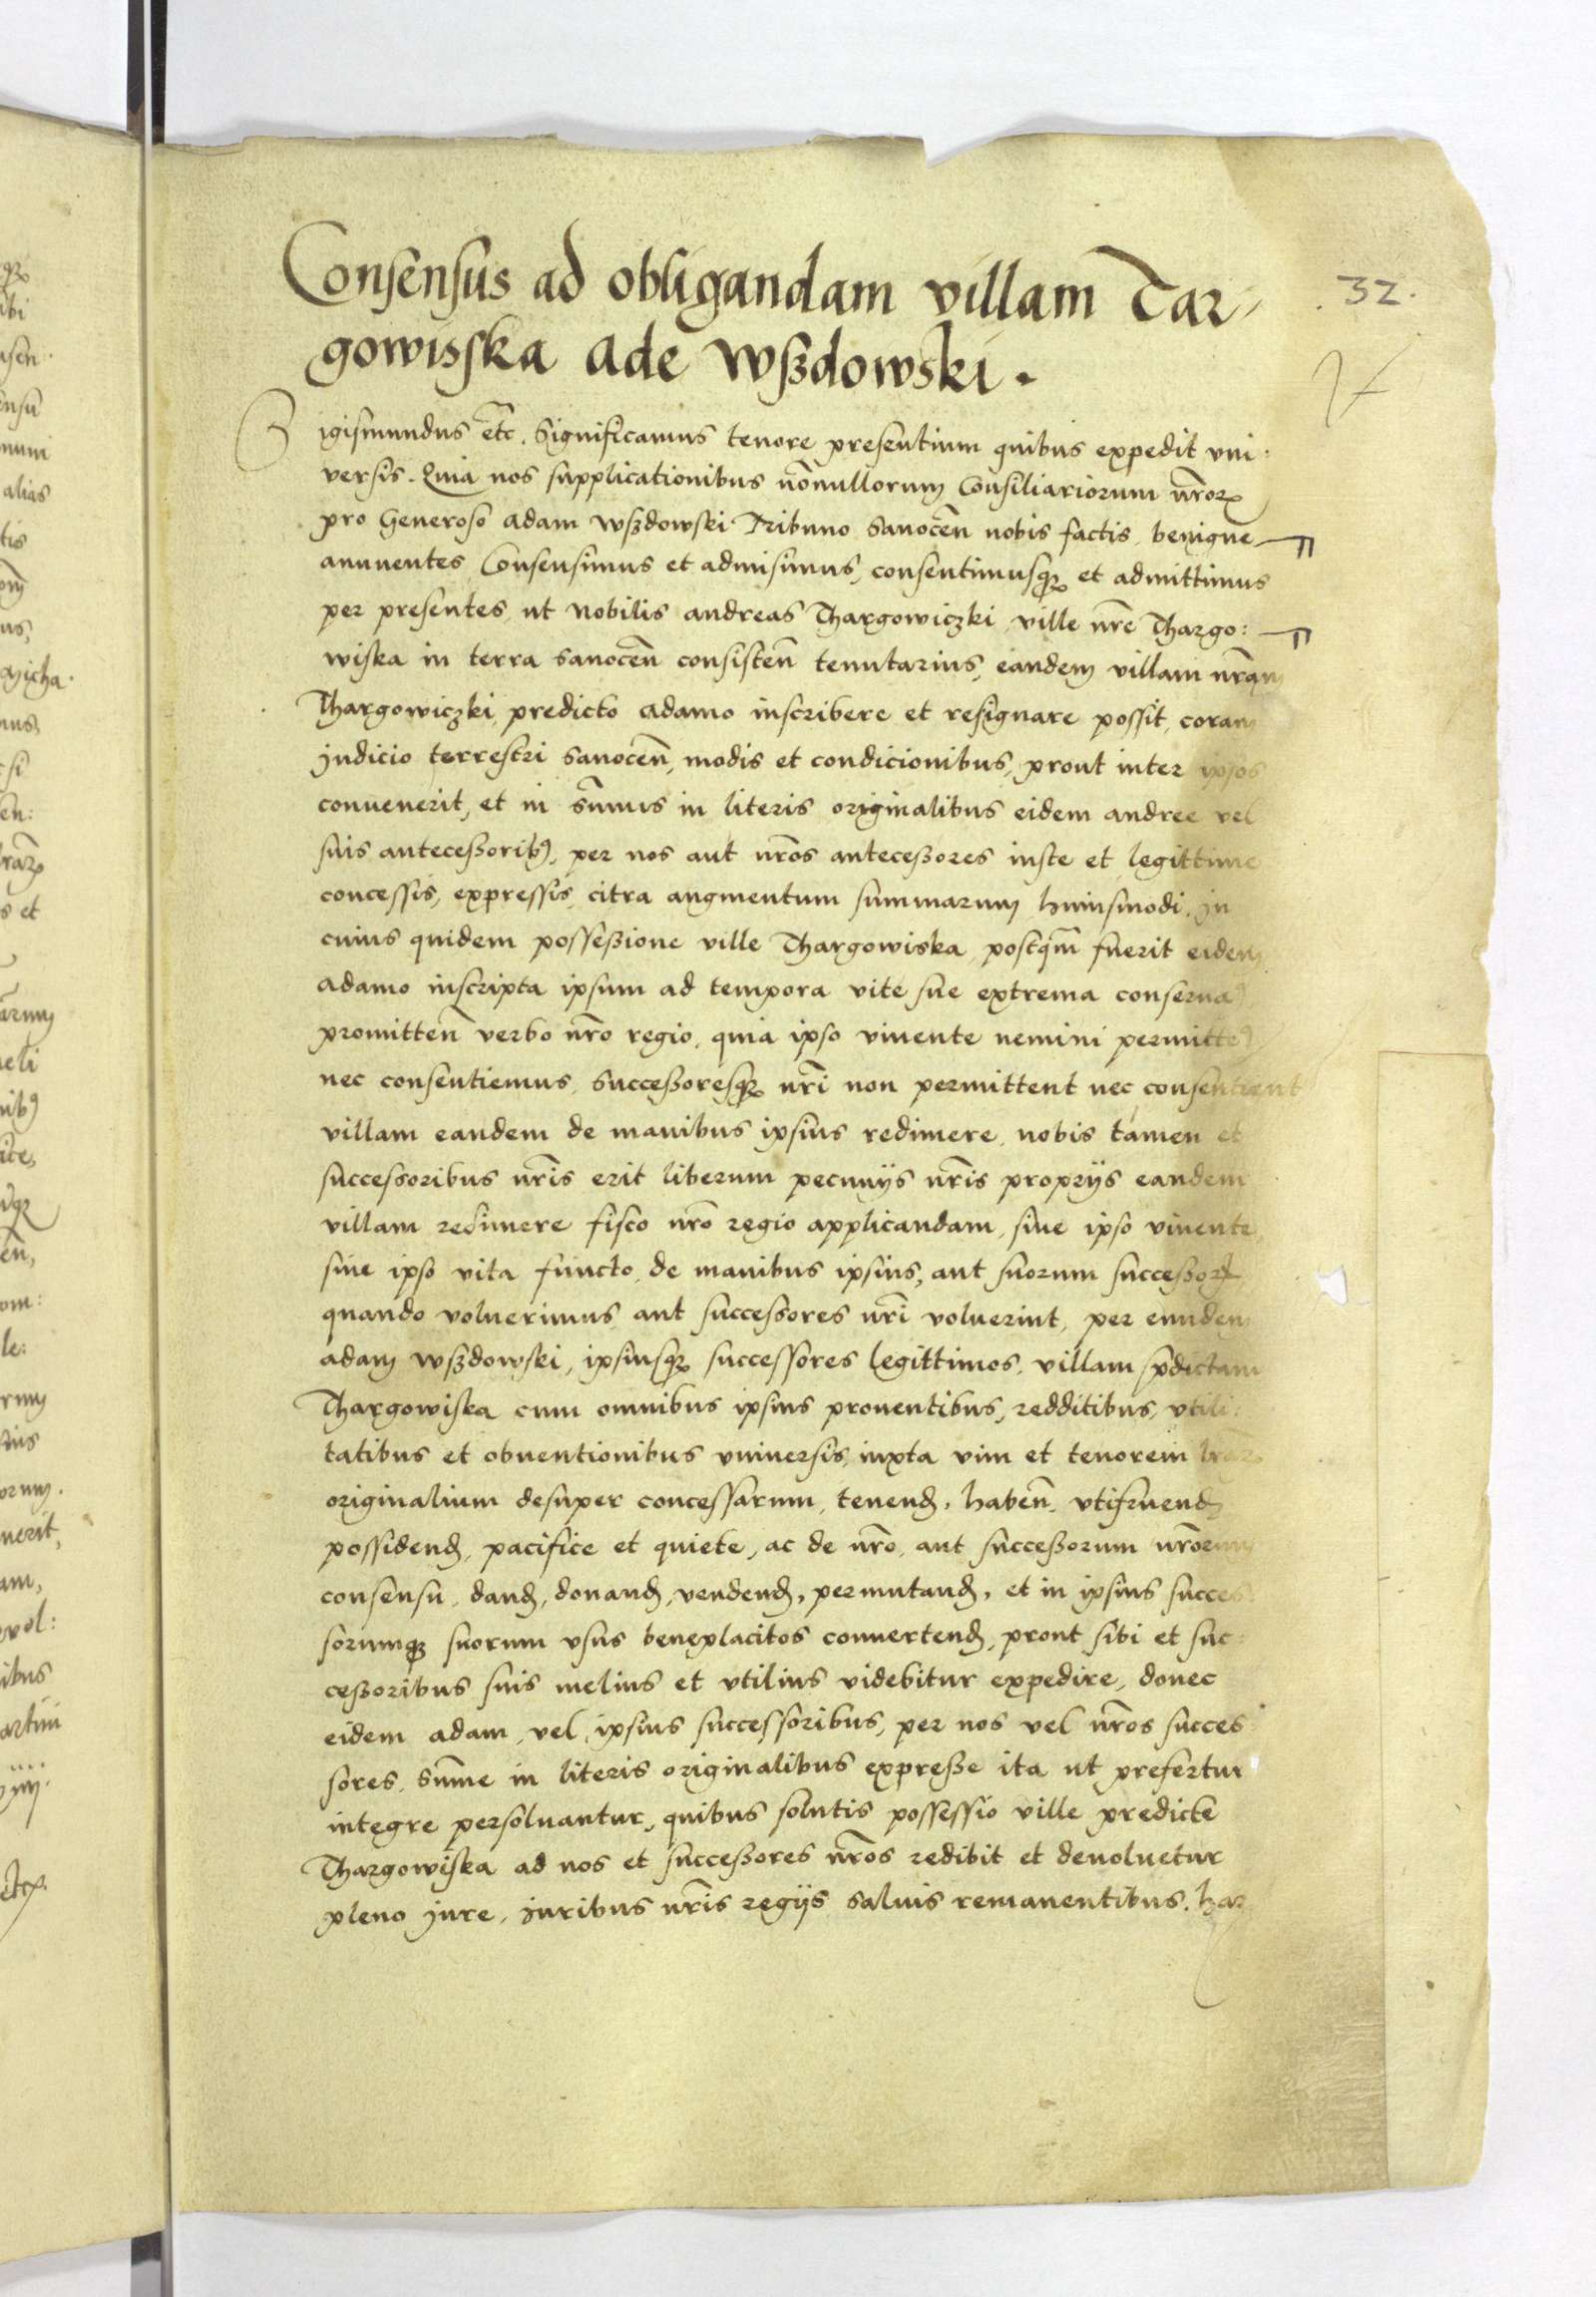 Consensus ad obligandam villam Tar-
gowisska Ade Wszdowski.
32.
Sigismundus etc̄. Significamus tenore presentium quibus expedit vni:
versis. Quia nos supplicationibus nōnullorum Consiliariorum nr̄orꝝ
pro Generoso Adam Wszdowski Tribuno Sanoceñ nobis factis, benigne
annuentes, Consensimus et admisimus, consentimusqꝫ et admittimus
per presentes, ut Nobilis Andreas Thargowiczki, ville nr̄e Thargo:
wiska in terra Sanoceñ consisteñ tenutarius, eandem villam nr̄am
Thargowiczki, predicto Adamo inscribere et resignare possit, coram
Judicio terrestri Sanoceñ, modis et condicionibus, prout inter ipsos
convenerit, et in sūmis in literis originalibus eidem Andree vel
suis antecessoribꝰ, per nos aut nr̄os antecessores iuste et legittime
concessis, expressis, citra augmentum summarum huiusmodi, In
cuius quidem possessione ville Thargowiska, postqm̄ fuerit eidem
Adamo inscripta ipsum ad tempora vite sue extrema conserua
promitteñ verbo nr̄o regio, quia ipso viuente nemini permitte
nec consentiemus, Successoresqꝫ nr̄i non permittent nec consentient
villam eandem de manibus ipsius redimere, nobis tamen et
successoribus nr̄is erit liberum pecunijs nr̄is proprijs eandem
villam redimere fisco nr̄o regio applicandam, siue ipso viuente,
siue ipso vita functo, de manibus ipsius, aut suorum successorꝝ
quando voluerimus aut successores nr̄i voluerint, per eundem
Adam Wszdowski, ipsiusqꝫ successores legittimos, villam sp̄dictam
Thargowiska cum omnibus ipsius prouentibus, redditibus, vtili:
tatibus et obuentionibus vniuersis, iuxta vim et tenorem lr̄arꝝ
originalium desuper concessarum, tenend, habeñ, vtifruend
possidend, pacifice et quiete, ac de nr̄o, aut successorum nr̄orum
consensu, dand, donand, vendend, permutand, et in ipsius succes
sorumqꝫ suorum vsus beneplacitos conuertend, prout sibi et suc:
cessoribus suis melius et vtilius videbitur expedire, donec
eidem Adam, vel ipsius successoribus, per nos vel nr̄os succes
sores, sūme in literis originalibus expresse ita ut prefertur
integre persoluantur, quibus solutis possessio ville predicte
Thargowiska ad nos et successores nr̄os redibit et deuoluetur
pleno Jure, Juribus nr̄is regijs saluis remanentibus. har